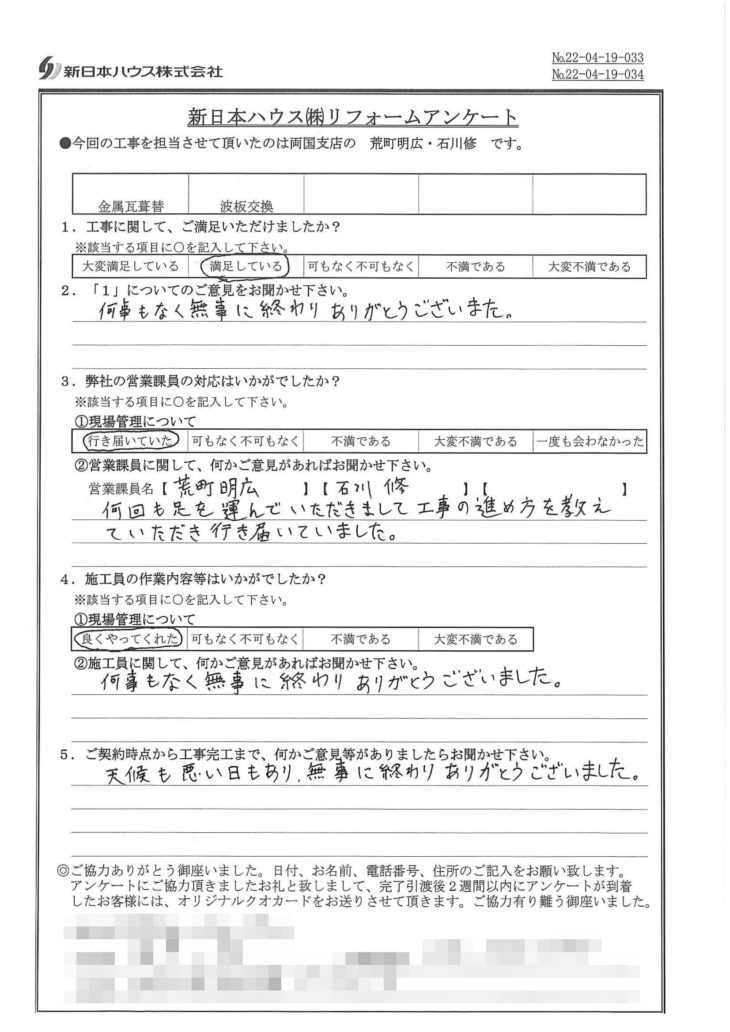 新日本ハウス株式会社
№22-04-19-033
№22-04-19-034
新日本ハウス㈱リフォームアンケート
●今回の工事を担当させて頂いたのは両国支店の 荒町明広・石川修 です。
金属瓦葺替 波板交換
1．工事に関して、ご満足いただけましたか？
※該当する項目に○を記入して下さい。
大変満足している 満足している 可もなく不可もなく 不満である 大変不満である
2．「1」についてのご意見をお聞かせ下さい。
何事もなく無事に終わりありがとうございまた。
3．弊社の営業課員の対応はいかがでしたか？
※該当する項目に○を記入して下さい。
①現場管理について
行き届いていた 可もなく不可もなく 不満である 大変不満である 一度も会わなかった
②営業課員に関して、何かご意見があればお聞かせ下さい。
営業課員名【 荒町明広 】【 石川 修 】【 】
何回も足を運んでいただきまして工事の進め方を教え
ていただき行き届いていました。
4．施工員の作業内容等はいかがでしたか？
※該当する項目に○を記入して下さい。
①現場管理について
良くやってくれた 可もなく不可もなく 不満である 大変不満である
②施工員に関して、何かご意見があればお聞かせ下さい。
何事もなく無事に終わりありがとうございました。
5．ご契約時点から工事完工まで、何かご意見等がありましたらお聞かせ下さい。
天候も悪い日もあり、無事に終わりありがとうございました。
◎ご協力ありがとう御座いました。日付、お名前、電話番号、住所のご記入をお願い致します。
アンケートにご協力頂きましたお礼と致しまして、完了引渡後2週間以内にアンケートが到着
したお客様には、オリジナルクオカードをお送りさせて頂きます。ご協力有り難う御座いました。